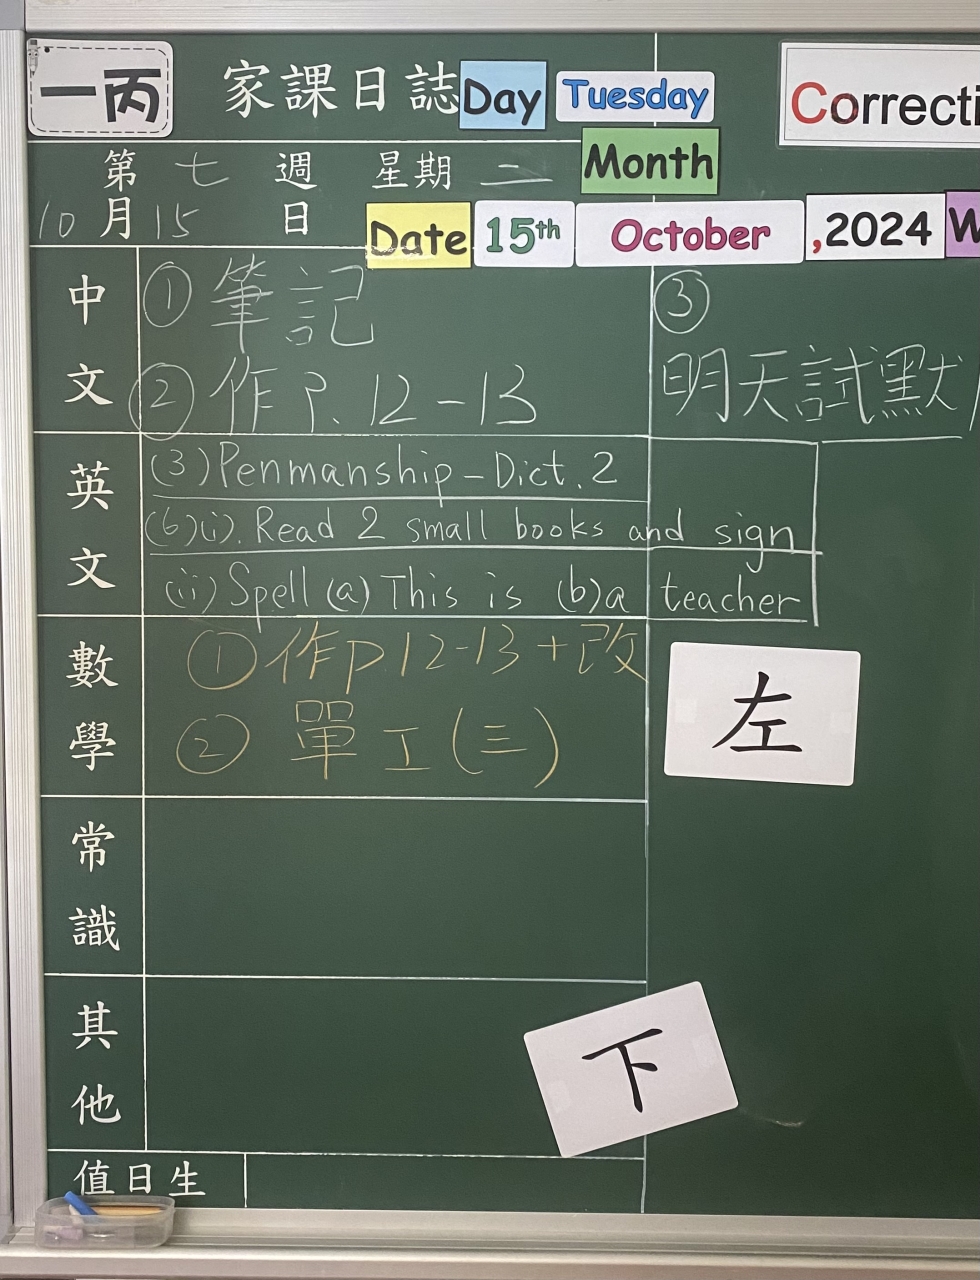 一丙
家課日誌 Day Tuesday
Correcti
第七週 星期二 Month
10月15日
Date 15th October ,2024 W
中文
① 筆記
② 作 P. 12-13
③
明天試默
英文
(3) Penmanship - Dict. 2
(6)(i). Read 2 small books and sign
(ii) Spell (a) This is (b) a teacher
數學
① 作 p.12-13 + 改
② 單工(三)
左
常識
其他
下
值日生